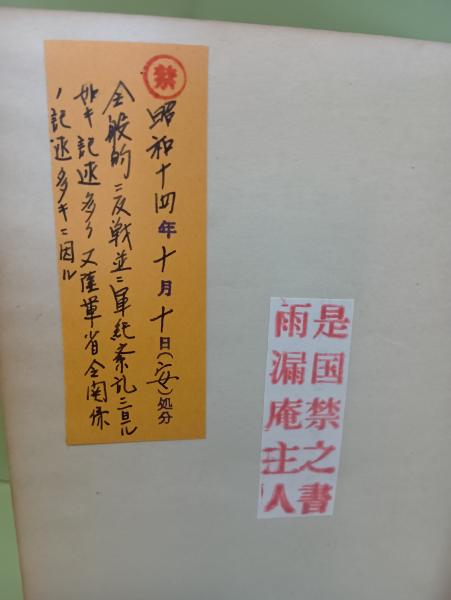 禁
昭和十四年十月十日(安)処分
全般的ニ反戦並ニ軍紀紊乱ニ亘ル
如キ記述多ク又陸軍省全関係
ノ記述多キニ因ル
是国禁之書
雨漏庵主人